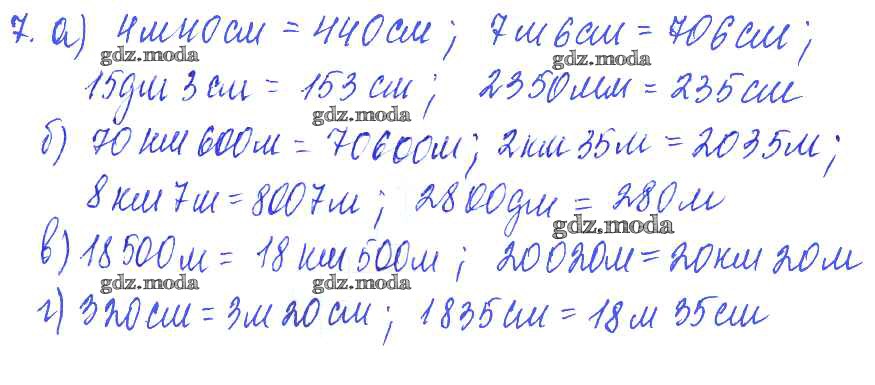 7. а) 4м 40см = 440см; 7м 6см = 706см;
gdz.moda gdz.moda
15дм 3см = 153см; 2350мм = 235см
gdz.moda
б) 70км 600м = 70600м; 2км 35м = 2035м;
8км 7м = 8007м; 2800дм = 280м
gdz.moda
в) 18500м = 18км 500м; 20020м = 20км 20м
gdz.moda gdz.moda
г) 320см = 3м 20см; 1835см = 18м 35см